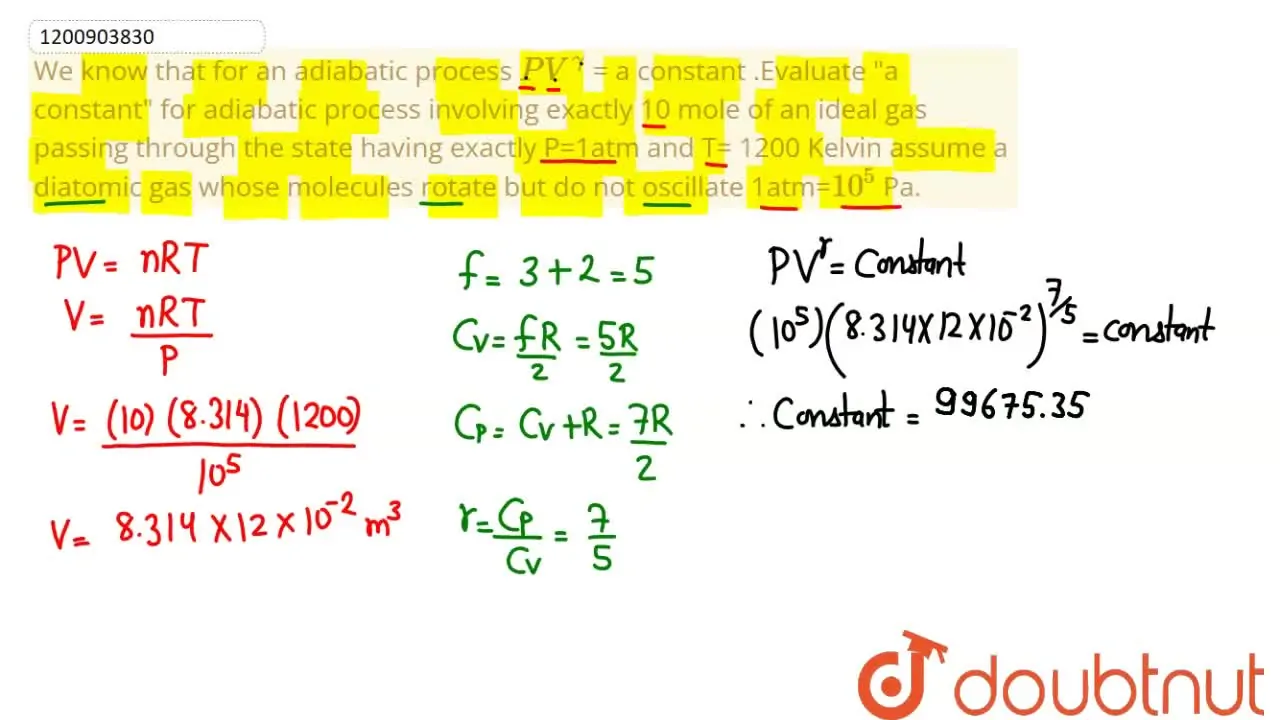 1200903830
We know that for an adiabatic process PV^γ = a constant .Evaluate "a
constant" for adiabatic process involving exactly 10 mole of an ideal gas
passing through the state having exactly P=1atm and T= 1200 Kelvin assume a
diatomic gas whose molecules rotate but do not oscillate 1atm=10^5 Pa.
PV = nRT
V = nRT/P
V = (10) (8.314) (1200)/10^5
V = 8.314 × 12 × 10^-2 m^3
f = 3 + 2 = 5
Cv = fR/2 = 5R/2
Cp = Cv + R = 7R/2
r = Cp/Cv = 7/5
PV^r = Constant
(10^5)(8.314 × 12 × 10^-2)^7/5 = constant
∴ Constant = 99675.35
doubtnut